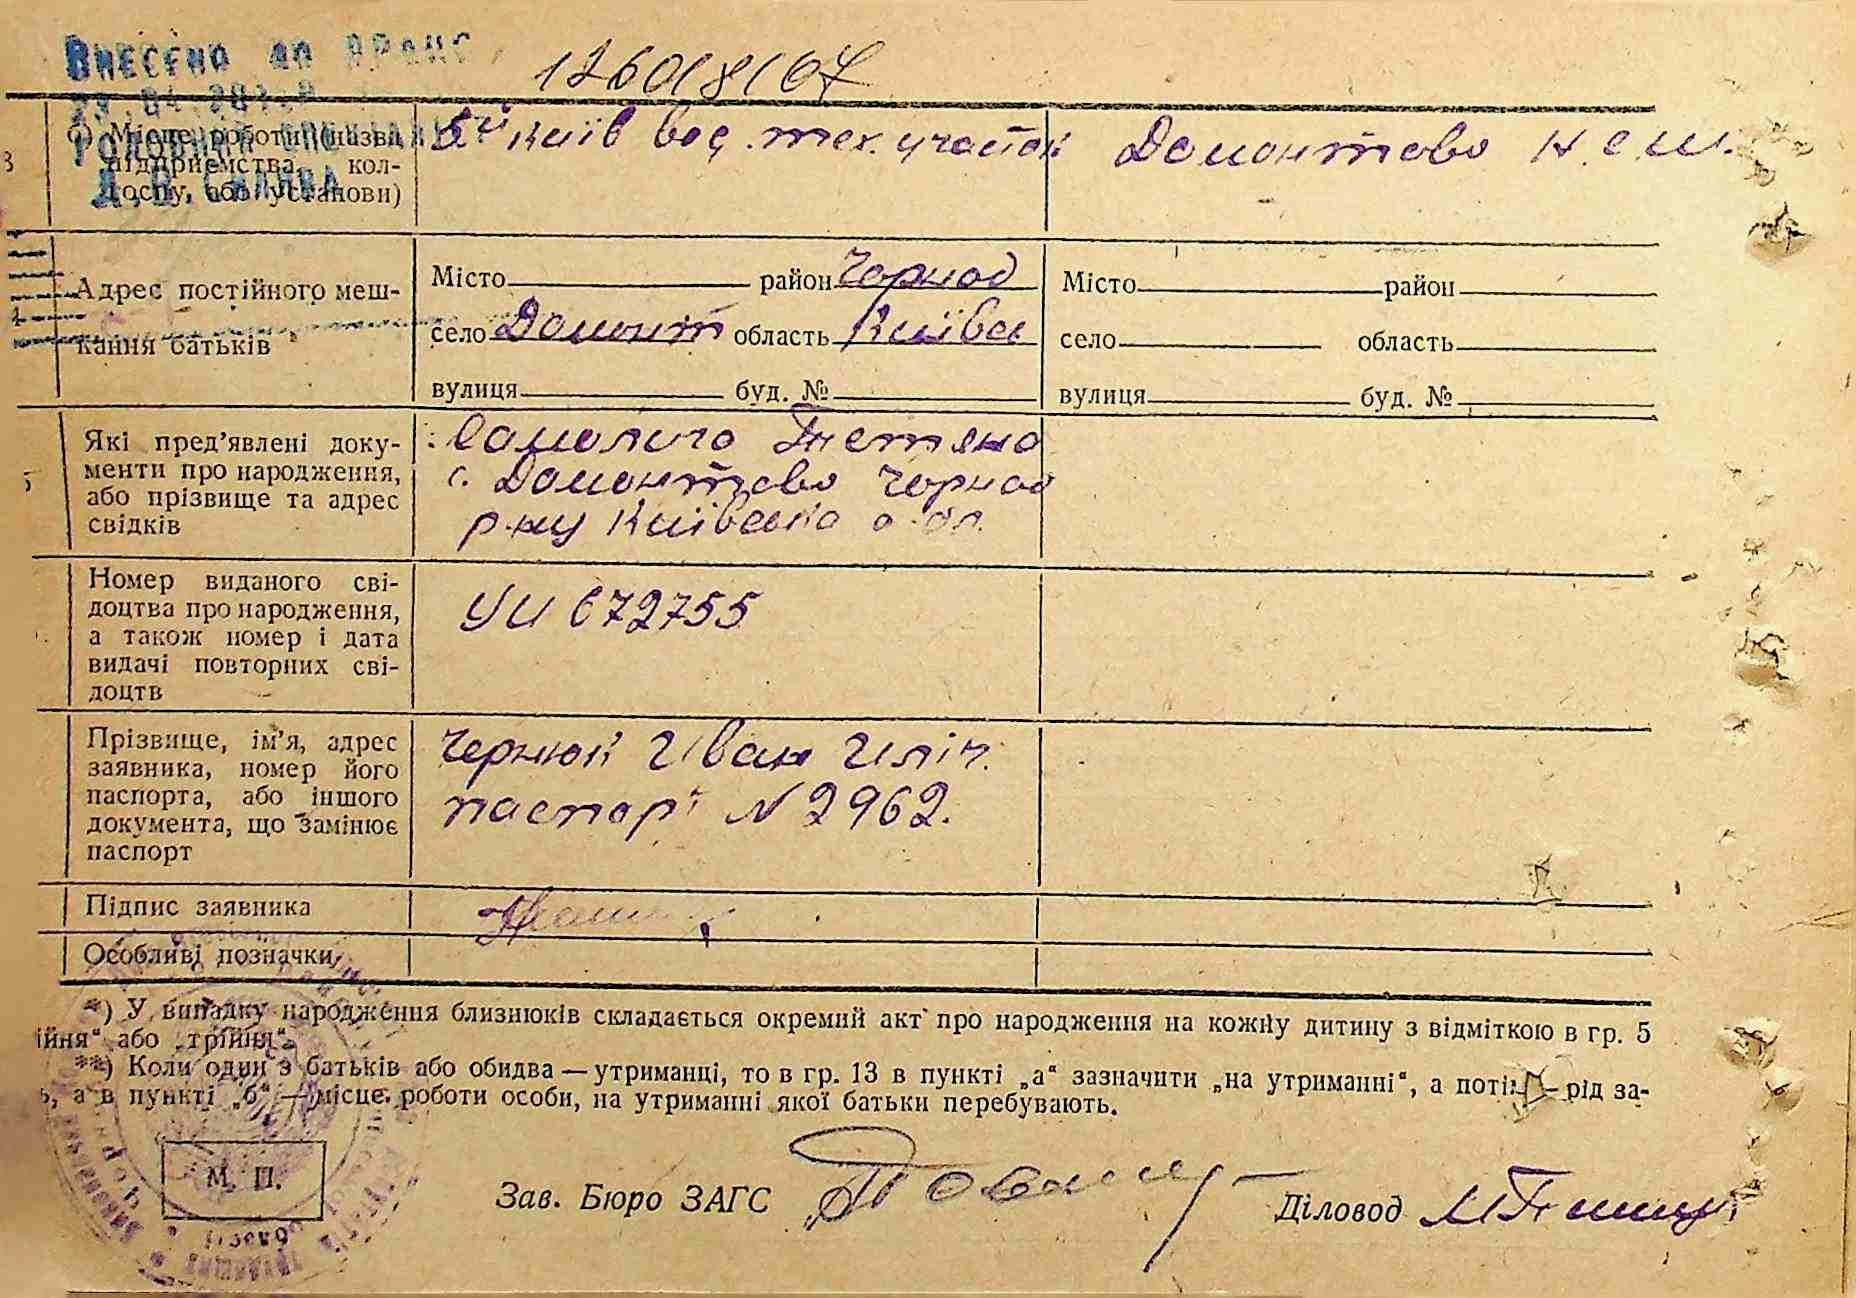 Внесено до ДРАЦС
1260/8/07
б) Місце роботи (назва
підприємства, кол-
госпу, або установи)
5й Київ вод. тех. участок
Домонтово Н С Ш.
Адрес постійного меш-
кання батьків
Місто район Чорноб
село Домонт область Київсь
вулиця буд. №
Місто район
село область
вулиця буд. №
Які пред'явлені доку-
менти про народження,
або прізвище та адрес
свідків
Самолиго Тетяна
с. Домонтово Чорноб
р-ну Київська обл.
Номер виданого сві-
доцтва про народження,
а також номер і дата
видачі повторних сві-
доцтв
УИ 672755
Прізвище, ім'я, адрес
заявника, номер його
паспорта, або іншого
документа, що замінює
паспорт
Чернюк Иван Иліч.
паспорт N 2962.
Підпис заявника
Особливі позначки
*) У випадку народження близнюків складається окремий акт про народження на кожну дитину з відміткою в гр. 5
ійня“ або „трійня“.
**) Коли один з батьків або обидва — утриманці, то в гр. 13 в пункті „а“ зазначити „на утриманні“, а потім — рід за-
ь, а в пункті „б“ — місце роботи особи, на утриманні якої батьки перебувають.
М. П.
Зав. Бюро ЗАГС
Діловод